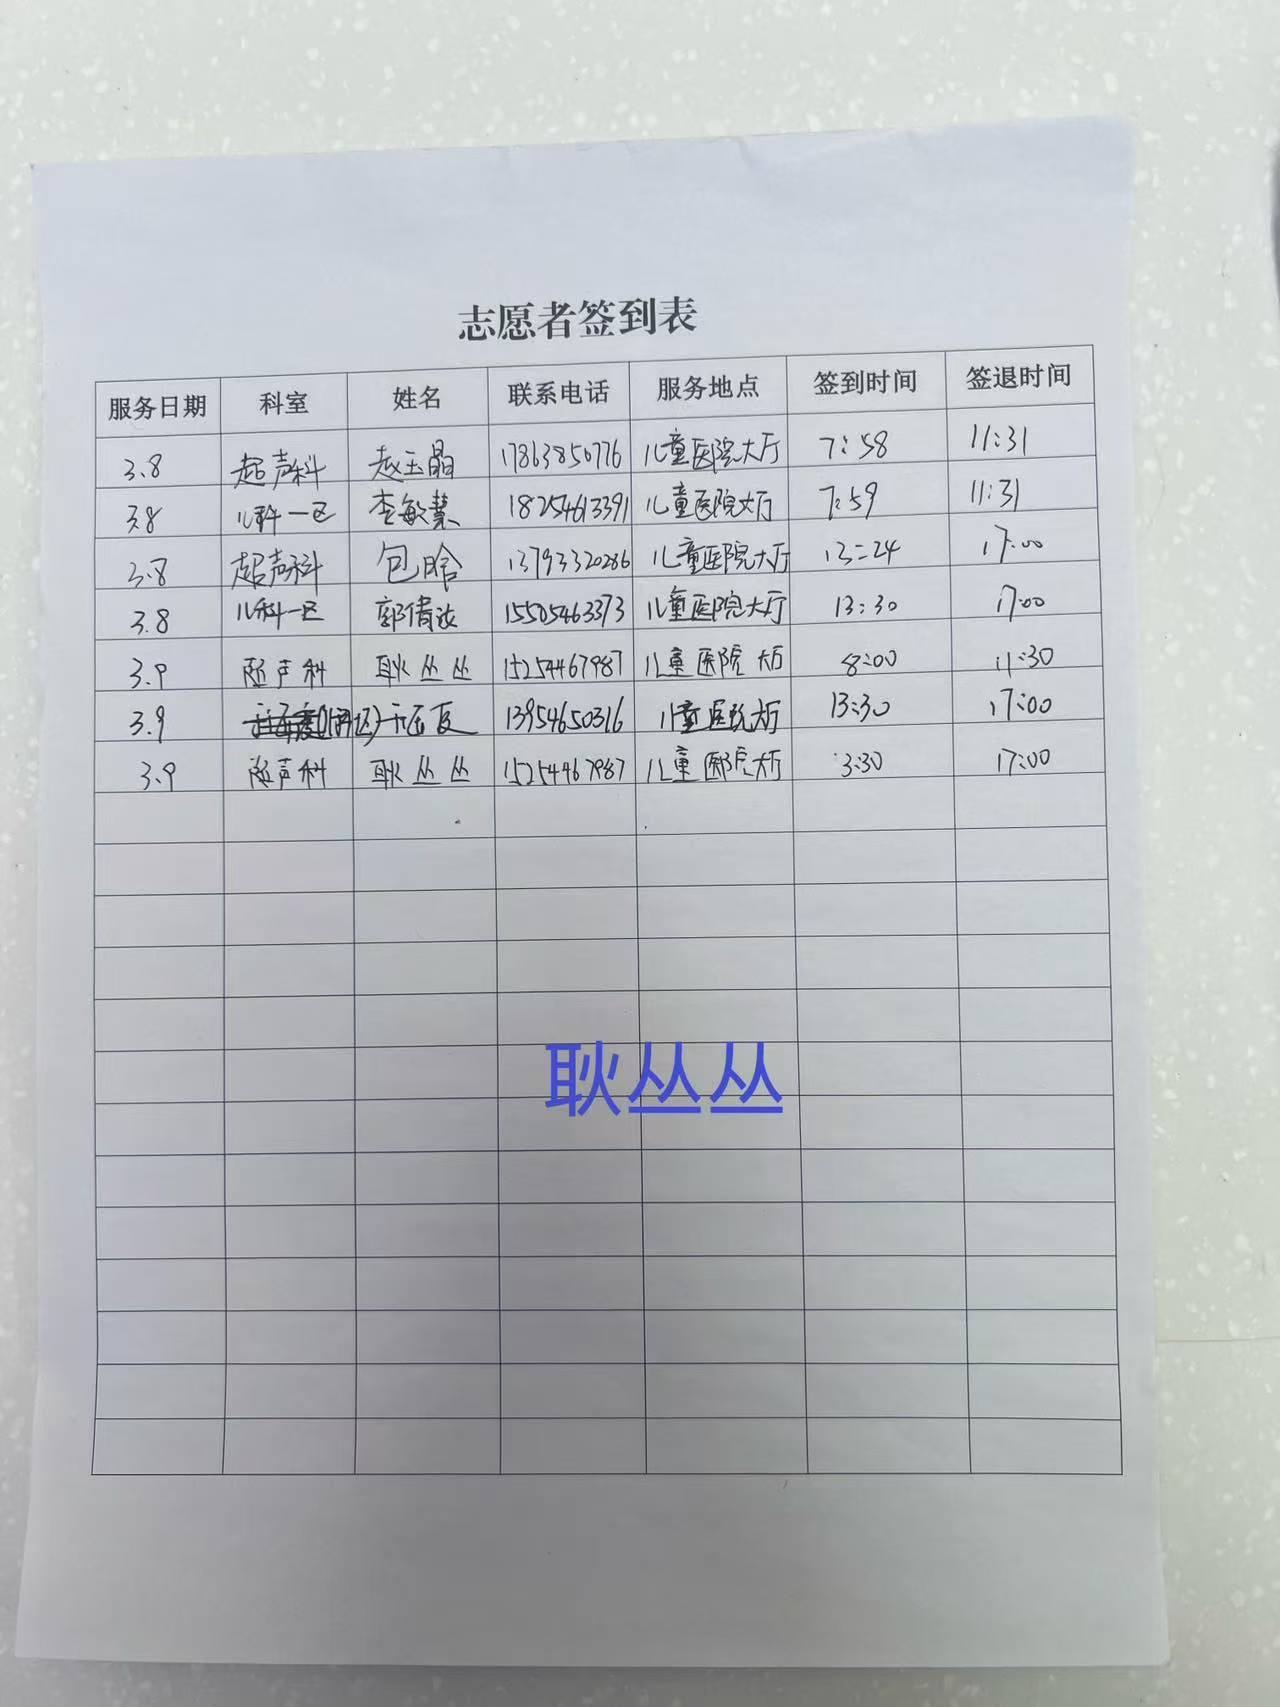 志愿者签到表
服务日期 科室 姓名 联系电话 服务地点 签到时间 签退时间
3.8 超声科 赵玉晶 17863850776 儿童医院大厅 7:58 11:31
3.8 儿科一区 李敏慧 18254613391 儿童医院大厅 7:59 11:31
3.8 超声科 包晗 13793320286 儿童医院大厅 13:24 17:00
3.8 儿科一区 郭倩 15505463373 儿童医院大厅 13:30 17:00
3.9 超声科 耿丛丛 15254467987 儿童医院大厅 8:00 11:30
3.9 13954650316 儿童医院大厅 13:30 17:00
3.9 超声科 耿丛丛 15254467987 儿童医院大厅 3:30 17:00
耿丛丛